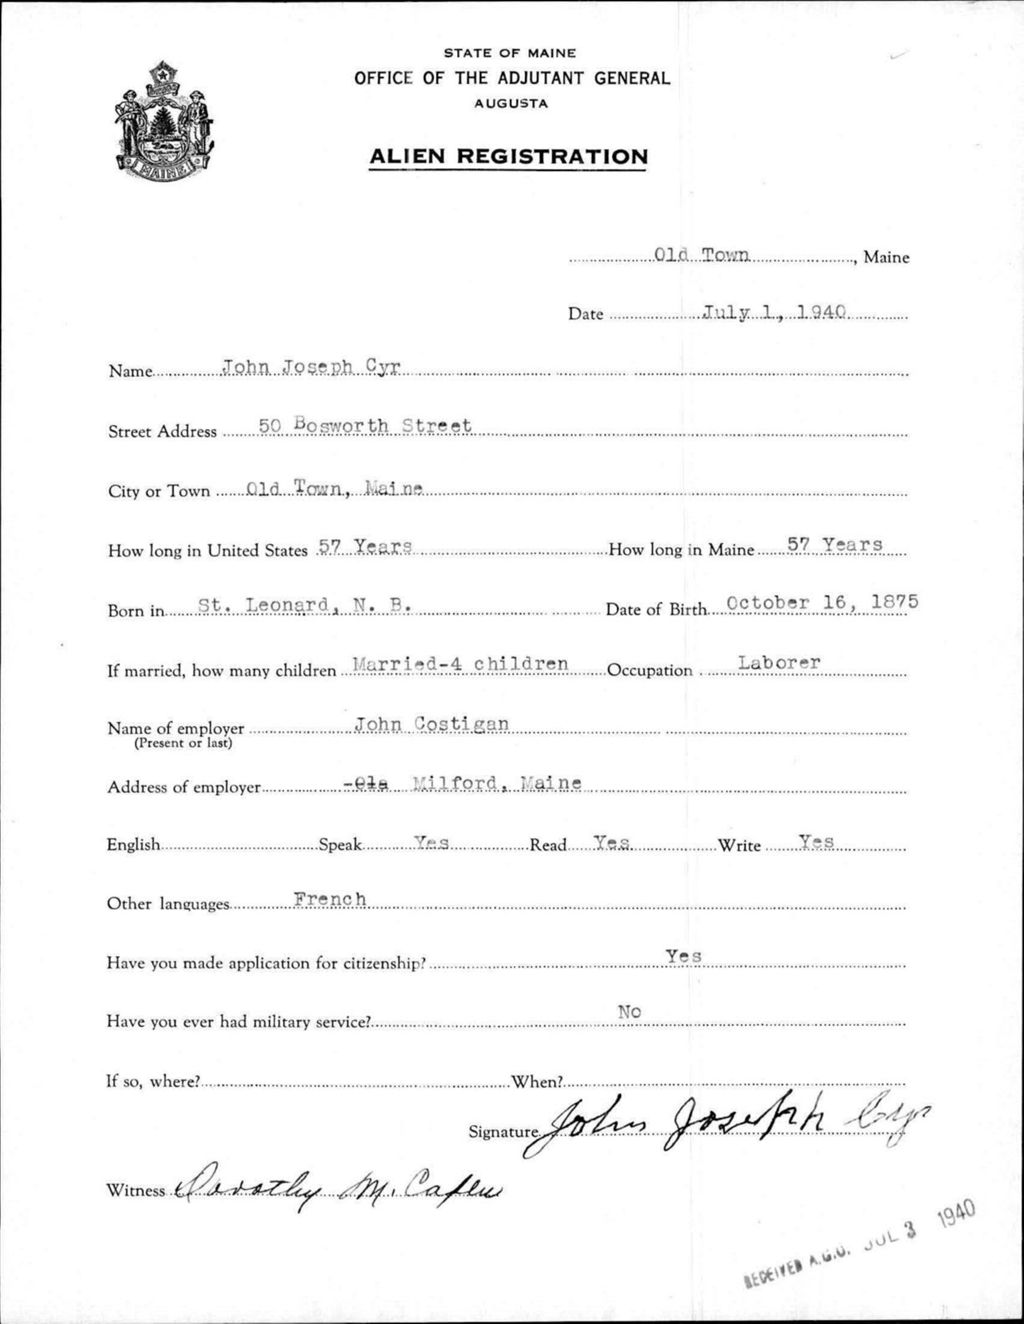 STATE OF MAINE
OFFICE OF THE ADJUTANT GENERAL
AUGUSTA
ALIEN REGISTRATION
MAINE
Old Town, Maine
Date July 1, 1940
Name John Joseph Cyr
Street Address 50 Bosworth Street
City or Town Old Town, Maine
How long in United States 57 Years How long in Maine 57 Years
Born in St. Leonard, N. B. Date of Birth October 16, 1875
If married, how many children Married-4 children Occupation Laborer
Name of employer John Costigan
(Present or last)
Address of employer Milford, Maine
English Speak Yes Read Yes Write Yes
Other languages French
Have you made application for citizenship? Yes
Have you ever had military service? No
If so, where? When?
Signature John Joseph Cyr
Witness Dorothy M.
RECEIVED A.G.O. JUL 3 1940